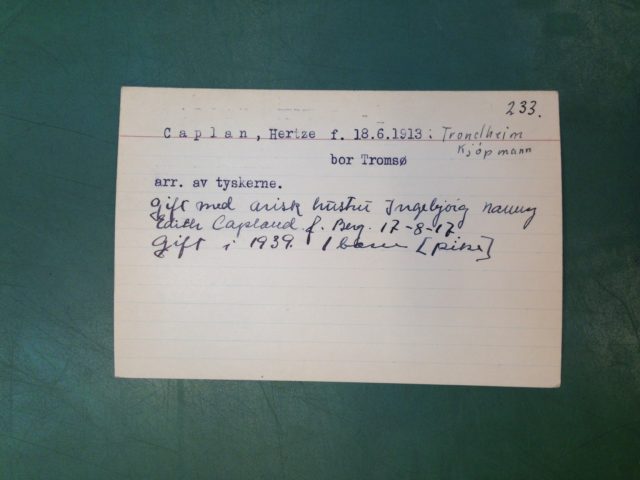 233.
Caplan, Hertze f. 18.6.1913 i Trondheim
Kjøpmann
bor Tromsø
arr. av tyskerne.
Gift med arisk hustru Ingebjörg
Edith Capland f. Berg. 17-8-17
Gift i 1939. 1 barn [pike]